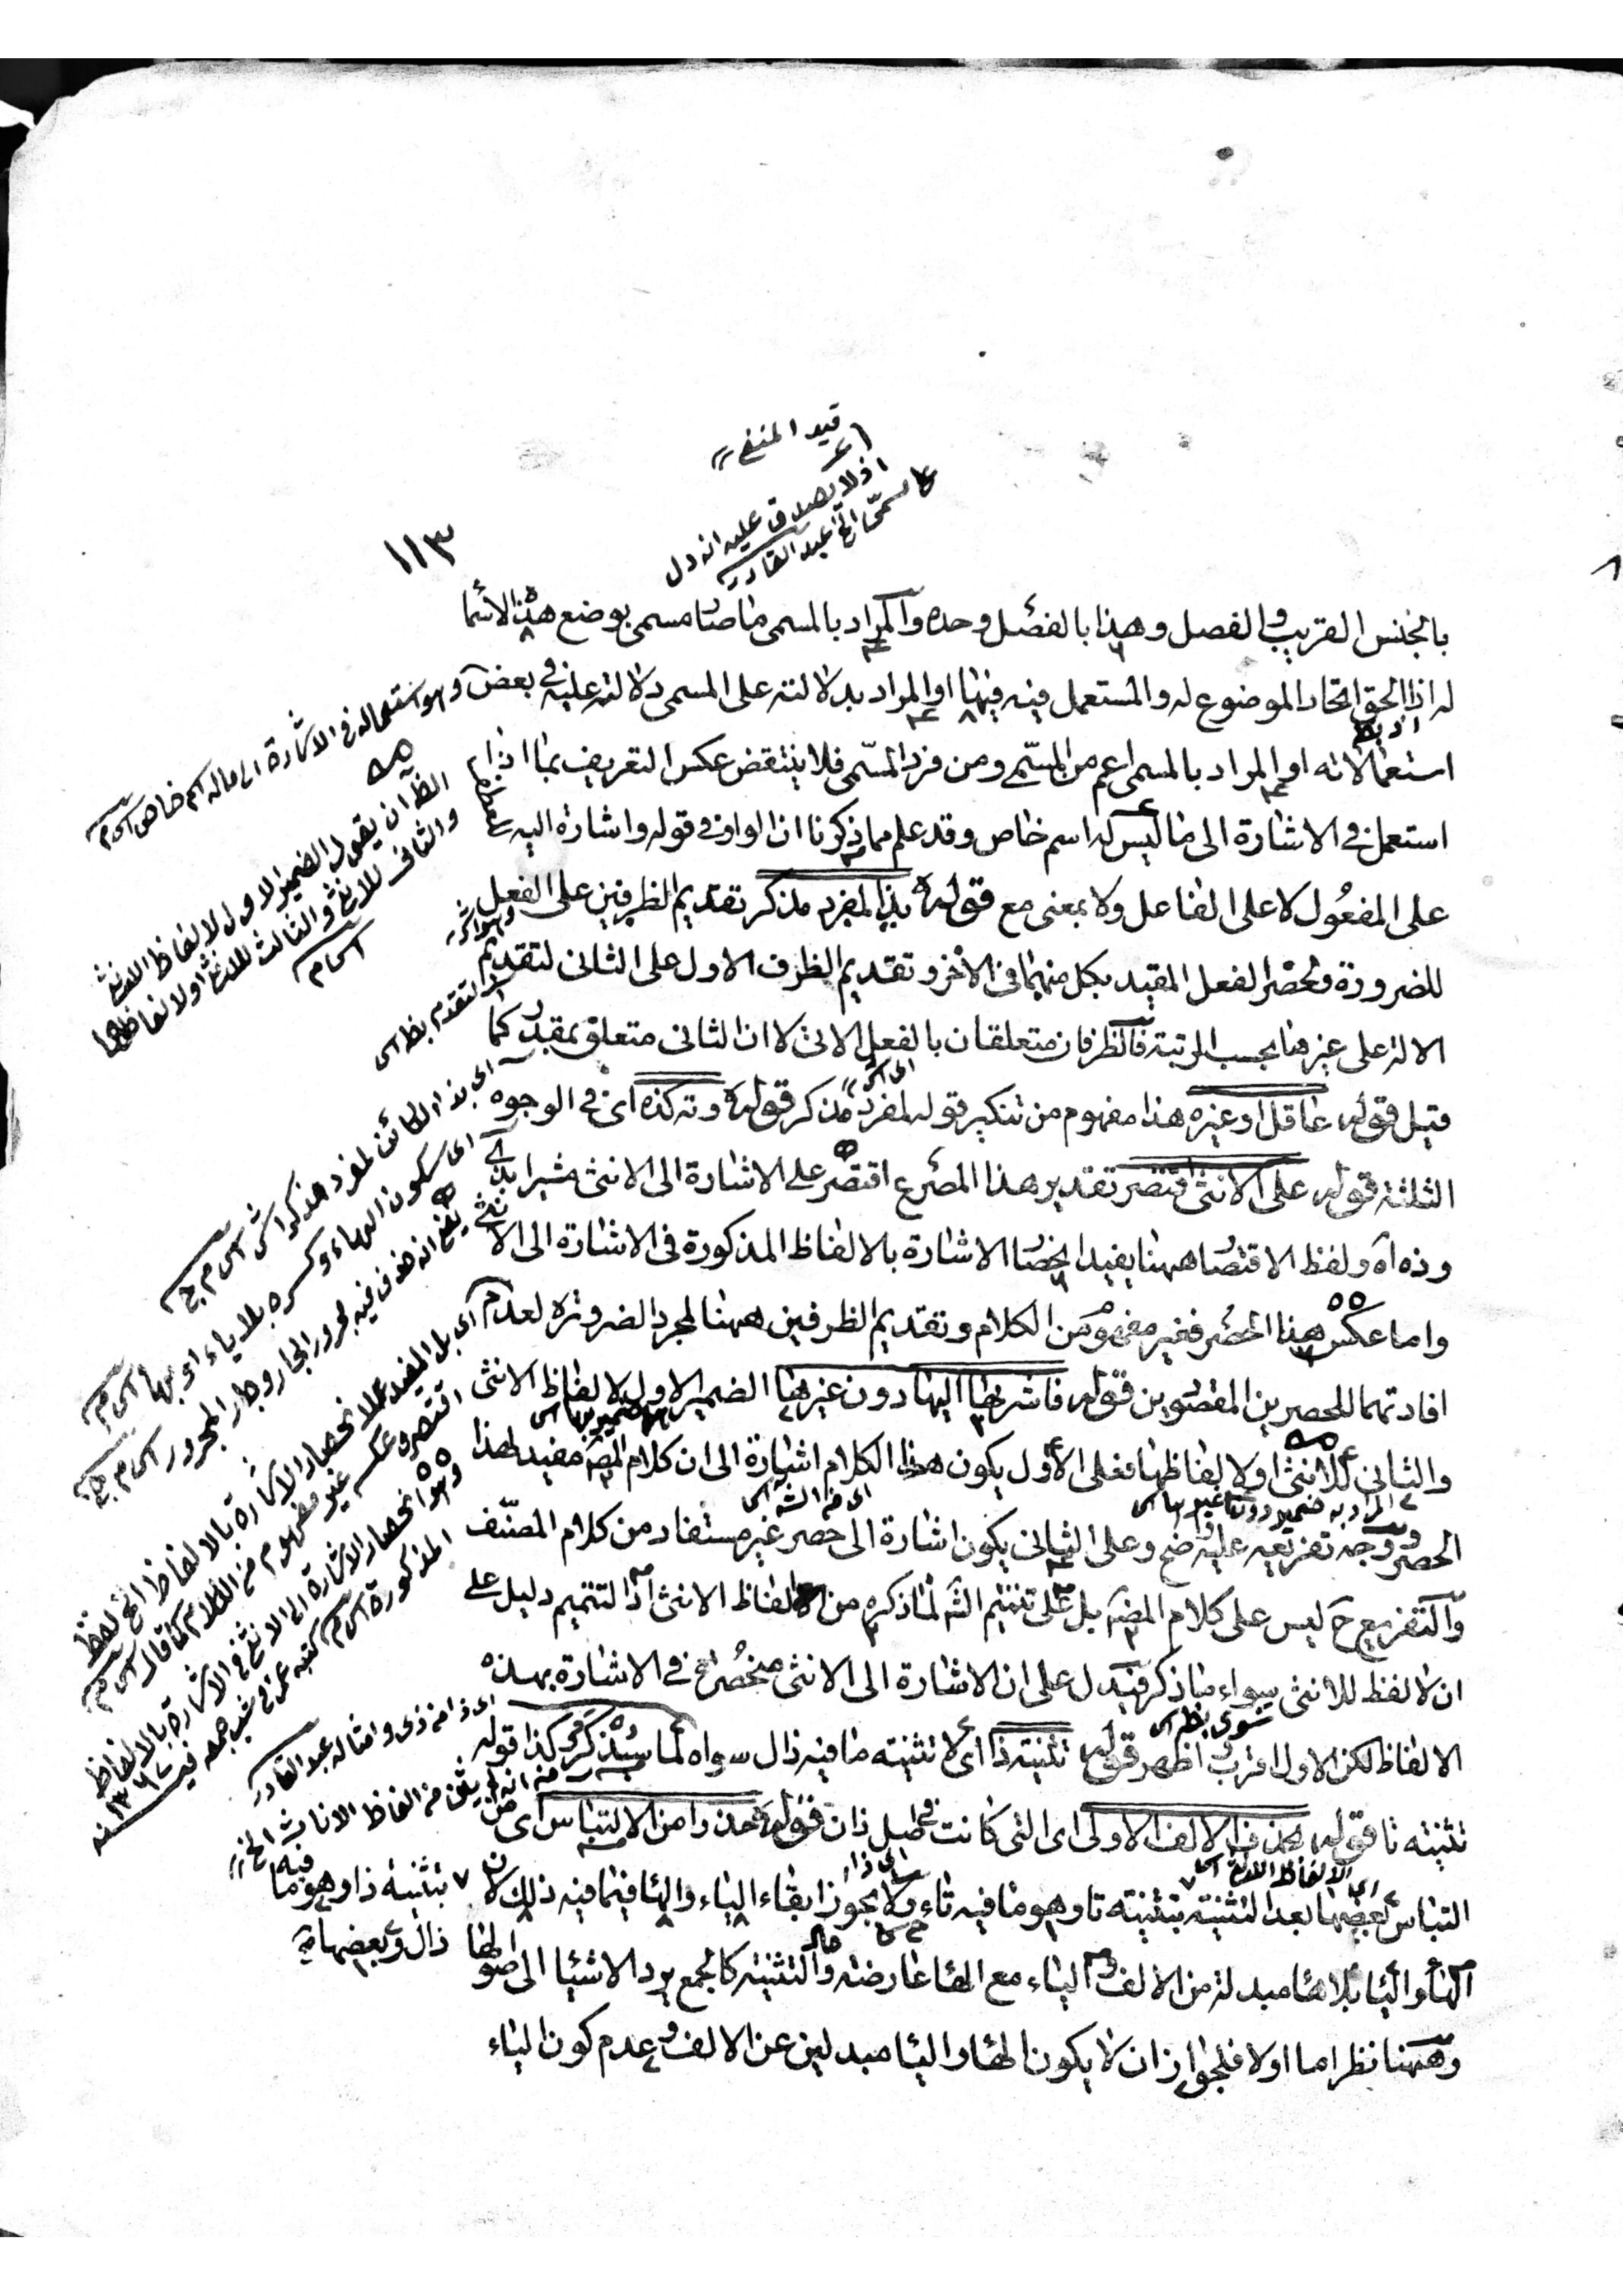 قيد المنفى
اذ لا يصدق عليه انه دل
على مسمى الخ عبد القادر
١١٣
بالجنس القريب والفصل وهذا بالفصل وحده والمراد بالمسمى ما صار مسمى بوضع هذه الاسما
له اذ الحق اتحاد الموضوع له والمستعمل فيه فيها او المراد بدلالته على المسمى دلالته عليه فى بعض
استعمالاته او المراد بالمسمى اعم من المسمى ومن فرد المسمى فلا ينتقض عكس التعريف بما اذا
استعمل فى الاشارة الى ما ليس له اسم خاص وقد علم مما ذكرنا ان الواو فى قوله واشارة اليه
على المفعول لا على الفاعل ولا بمعنى مع قوله بذا لمفرد مذكر تقديم الظرفين على الفعل
للضرورة ولحصر الفعل المقيد بكل منهما فى الآخر وتقديم الظرف الاول على الثانى لتقديم
الالة على غيرها بحسب المرتبة فالظرفان متعلقان بالفعل الاتى لا ان الثانى متعلق بمقدر كما
قيل قوله عاقل او غيره هذا مفهوم من تنكير قوله لمفرد مذكر قوله وته كذه اى فى الوجوه
الثلثة قوله على الانثى اقتصر تقدير هذا المصرع اقتصر على الاشارة الى الانثى مشيرا بذى
وذه آه ولفظ الاقتصار ههنا يفيد انحصار الاشارة بالالفاظ المذكورة فى الاشارة الى الا
نثى
واما عكس هذا الحصر فغير مفهوم من الكلام وتقديم الظرفين ههنا لمجرد الضرورة لعدم
افادتهما للحصرين المقصودين قوله فاشر بها اليها دون غيرها الضمير الاول لالفاظ الانثى
والثانى للانثى او لالفاظها فعلى الاول يكون هذا الكلام اشارة الى ان كلام المص مفيد لهذا
الحصر ووجه تفريعه عليه ضح وعلى الثانى يكون اشارة الى حصر غير مستفاد من كلام المصنف
والتفريع ح ليس على كلام المص بل على تتميم الش لما ذكره من الفاظ الانثى اذ التتميم دليل على
ان لا لفظ للانثى سواء ما ذكر فيدل على ان الاشارة الى الانثى منحصرة فى الاشارة بهذه
الالفاظ لكن الاول اقرب اظهر قوله تثنيته ذا اى لا تثنيته ما فيه ذال سواه لما سيذكره وكذا قوله
تثنيته تا قوله بحذف الالف الاولى اى التى كانت فى اصل ذان قوله حذرا من الالتباس اى من
التباس بعضها بعد التثنية بتثنيته تا وهو ما فيه تاء ولا يجوز ابقاء الياء والها فيما فيه ذلك لان
بتثنيته ذا وهو ما فيه
ذال وبعضها
الها والياء بلا ها مبدلة من الالف والياء مع الها عارضته والتثنيته كالجمع يرد الاشيا الى اصولها
وههنا نظر اما اولا فلجواز ان لا يكون الها والياء مبدلين عن الالف وعدم كون الياء
وهو استعماله فى الاشارة الى ما له اسم خاص
الظ ان يقول الضمير الاول لالفاظ الانثى
والثانى للانثى والثالث للانثى او لالفاظها
اى بذا الكائن لمفرد مذكر
اى سكون الهاء وكسره بلا ياء او بها
يعنى انه حذف فيه مجرور الجار وجار المجرور
اى بل المفيد عدم انحصار الاشارة بالالفاظ الخ لفظ
اقتصر وعكسه غير مفهوم من الكلام كما قال
وهو انحصار الاشارة الى الانثى فى الاشارة بالالفاظ
المذكورة
اى ذا من ذى وامثاله عبد القادر